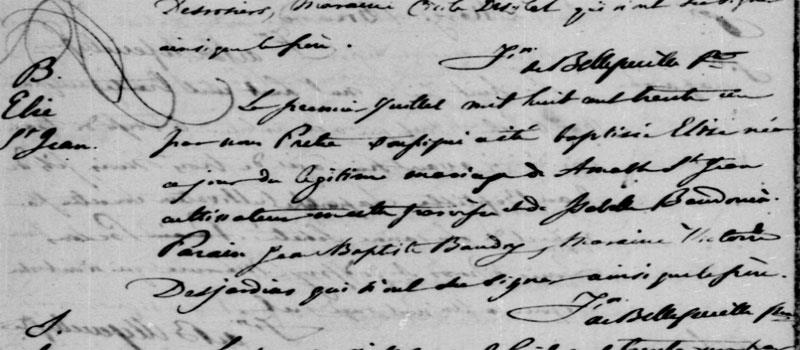 Desrosiers, Maraine Cecile Deselet qui n'ont su signer
ainsi que le père.
Jn.
de Bellefeuille Ptre
B.
Elise
St Jean.
Le premier Juillet mil huit cent trente un
par nous Prêtre soussigné a été baptisée Elise née
ce jour du légitime mariage de Amable St Jean
cultivateur en cette paroisse et de Isabelle Baudouin.
Parain Jean Baptiste Baudry, Maraine Victoire
Desjardins qui n'ont su signer ainsi que le père.
Jn.
de Bellefeuille Ptre
S.